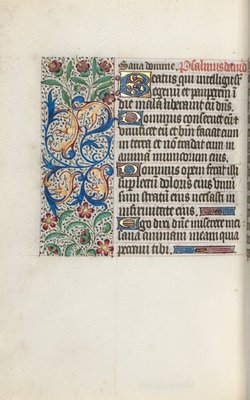 Sana domine. Psalmus david
Beatus qui intelligit s
egenū et pauperem in
die mala liberauit eū dn̄s.
Dominus conseruet eū et
uiuificet eū et btm̄ faciat eum
in terra et nō tradat eum in
inimicorum eius.
Dominus opem ferat illi
super lectū doloris eius vniu
sum stratū eius versasti in
infirmitate eius.
Ego dixi dn̄e miserere mei
sana animam meam quia
peccaui tibi.